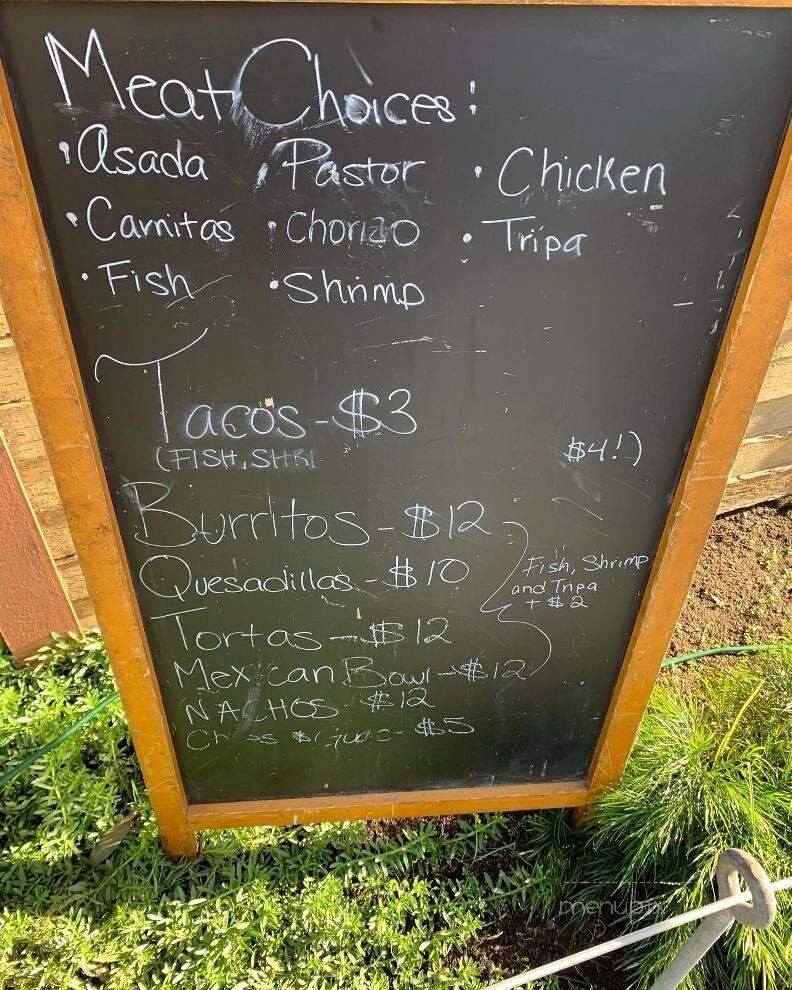 Meat Choices:
• Asada • Pastor • Chicken
• Carnitas • Chorizo • Tripa
• Fish • Shrimp
Tacos - $3
(FISH, SHRI $4!)
Burritos - $12
Quesadillas - $10
Fish, Shrimp
and Tripa
+ $2
Tortas - $12
Mexican Bowl - $12
NACHOS $12
$5
menupix